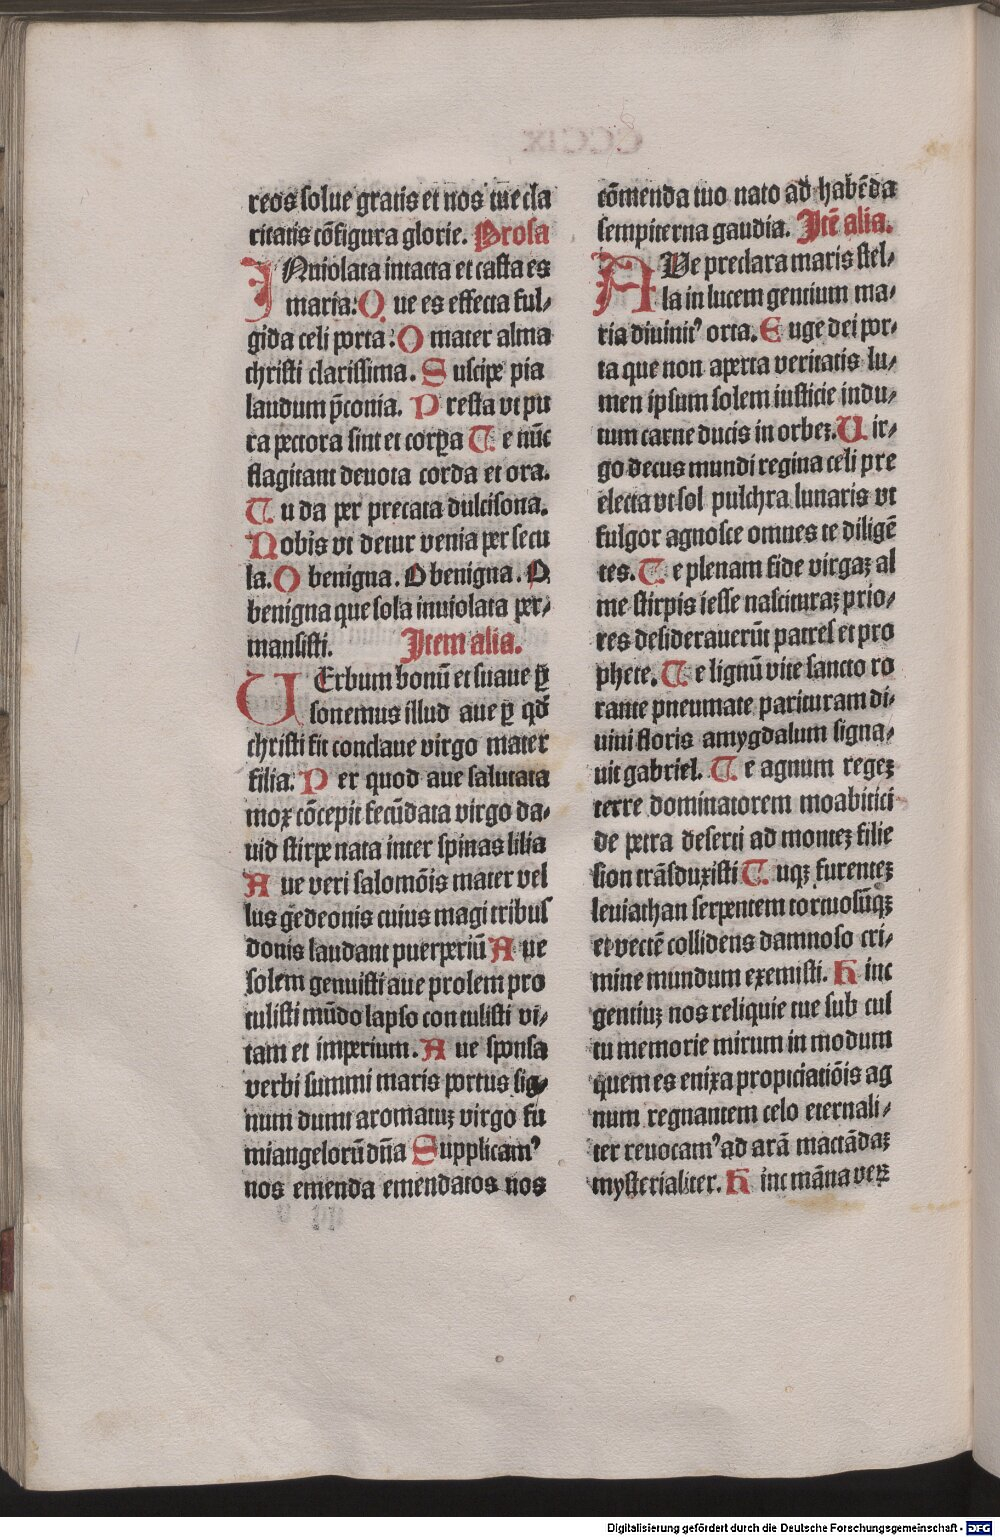 reos solue gratis et nos tue cla
ritatis cōfigura glorie. Prosa
INuiolata intacta et casta es
maria. Q ue es effecta ful⸗
gida celi porta: O mater alma
christi clarissima. S uscipe pia
laudum p̄conia. P resta vt pu
ra pectora sint et corꝑa T e nūc
flagitant deuota corda et ora.
T u da per precata dulcisona.
Nobis vt detur venia per secu
la. O benigna. O benigna. O
benigna que sola inuiolata per⸗
mansisti. Item alia.
VErbum bonū et suaue ꝑ
sonemus illud aue ꝑ qd̄
christi fit conclaue virgo mater
filia. P er quod aue salutata
mox cōcepit fecūdata virgo da⸗
uid stirpe nata inter spinas lilia
A ue veri salomōis mater vel
lus gedeonis cuius magi tribus
donis laudant puerperiū A ue
solem genuisti aue prolem pro
tulisti mūdo lapso contulisti vi⸗
tam et imperium. A ue sponsa
verbi summi maris portus sig⸗
num dumi aromatuꝫ virgo fu
mi angelorū dn̄a S upplicamꝰ
nos emenda emendatos nos
cōmenda tuo nato ad habēda
sempiterna gaudia. Itē alia.
AVe preclara maris stel⸗
la in lucem gentium ma⸗
ria diuinitꝰ orta. E uge dei por⸗
ta que non aperta veritatis lu⸗
men ipsum solem iusticie indu⸗
tum carne ducis in orbeꝫ. V ir⸗
go decus mundi regina celi pre
electa vt sol pulchra lunaris vt
fulgor agnosce omnes te diligē
tes. T e plenam fide virgaꝫ al
me stirpis iesse nascituraꝫ prio⸗
res desiderauerūt patres et pro
phete. T e lignū vite sancto ro
rante pneumate parituram di⸗
uini floris amygdalum signa⸗
uit gabriel. T e agnum regeꝫ
terre dominatorem moabitici
de petra deserti ad monteꝫ filie
sion trāsduxisti T uqꝫ furenteꝫ
leuiathan serpentem tortuosūqꝫ
et vectē collidens damnoso cri⸗
mine mundum exemisti. H inc
gentiuꝫ nos reliquie tue sub cul
tu memorie mirum in modum
quem es enixa propiciatiōis ag
num regnantem celo eternali⸗
ter reuocamꝰ ad arā mactādaꝫ
mysterialiter. H inc māna verꝫ
Digitalisierung gefördert durch die Deutsche Forschungsgemeinschaft - DFG